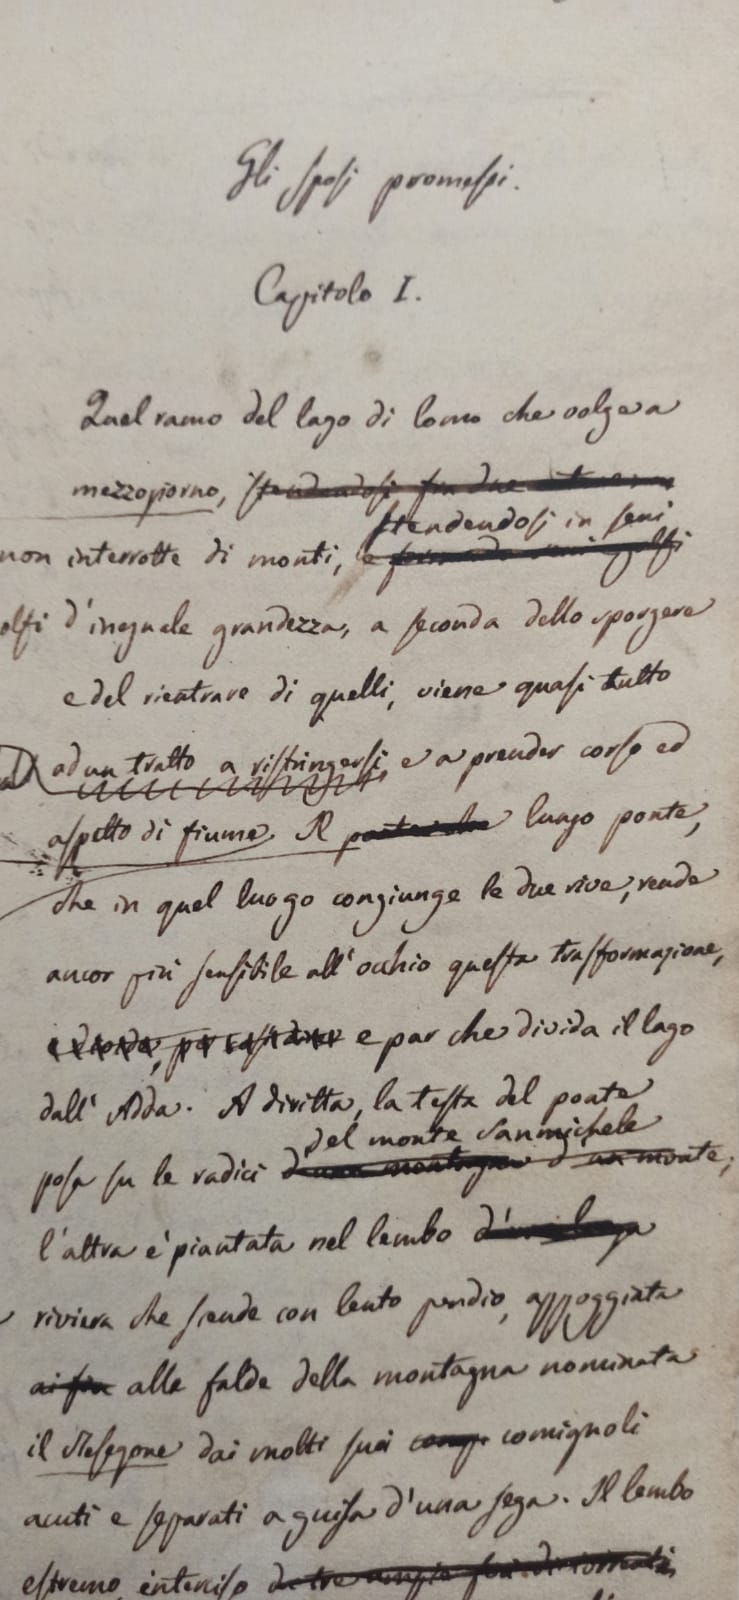 Gli sposi promessi.
Capitolo I.
Quel ramo del lago di Como che volge a
mezzogiorno, stendendosi fra due
stendendosi in seni
non interrotte di monti, e formando seni e golfi
olfi d'ineguale grandezza, a seconda dello sporgere
e del rientrare di quelli, viene quasi tutto
ad un tratto a ristringersi e a prender corso ed
aspetto di fiume. Il lungo ponte,
che in quel luogo congiunge le due rive, rende
ancor più sensibile all'occhio questa trasformazione,
e par che divida il lago
dall'Adda. A diritta, la testa del ponte
del monte Sanmichele
posa su le radici d'una montagna d'un monte;
l'altra è piantata nel lembo
riviera che scende con lento pendio, appoggiata
alle falde della montagna nominata
il Resegone dai molti suoi comignoli
acuti e separati a guisa d'una sega. Il lembo
estremo, interciso da tre ampie foci di torrenti,